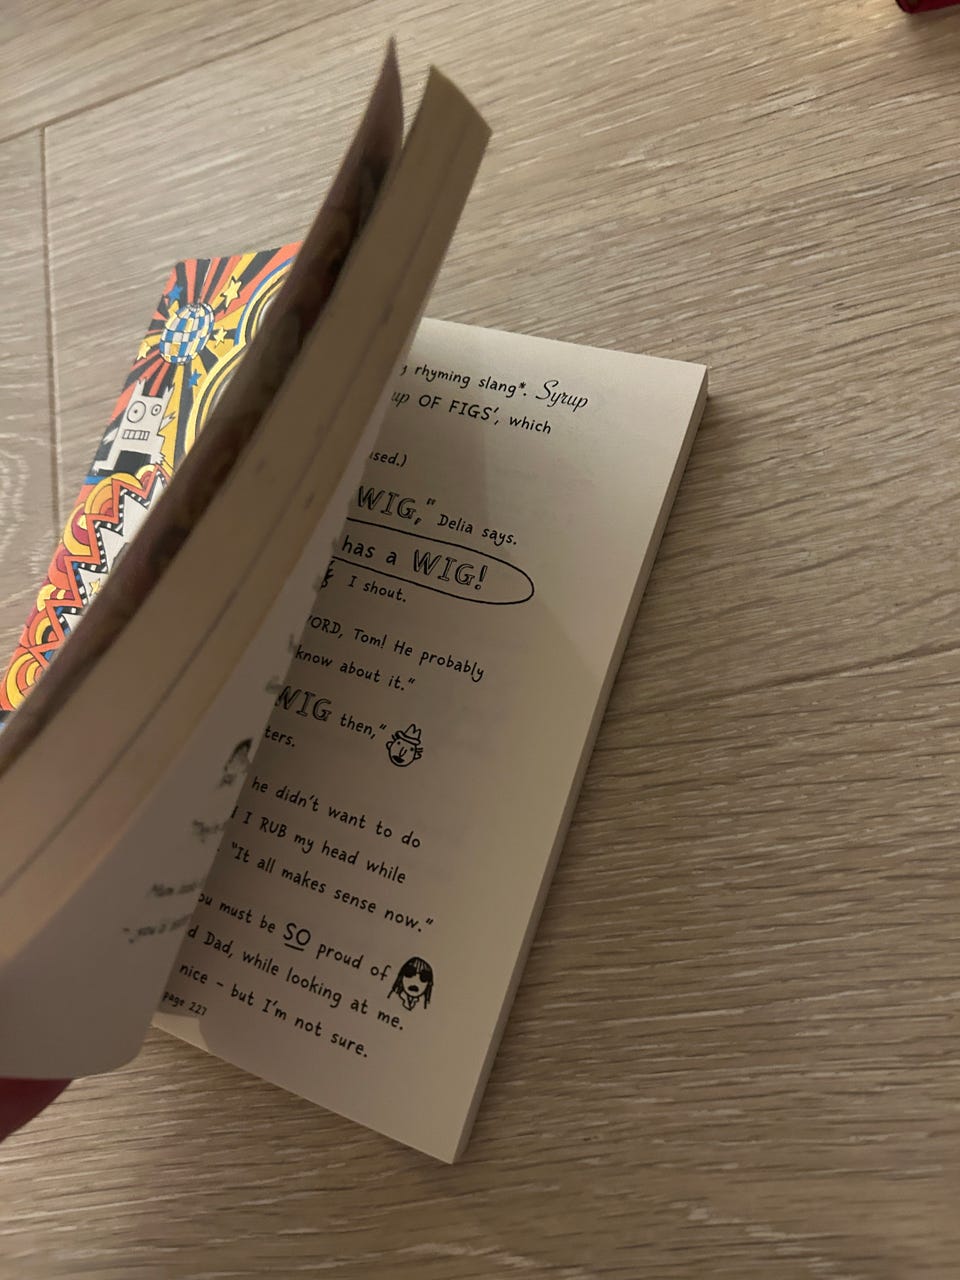 rhyming slang*. Syrup
up OF FIGS', which
sed.)
WIG," Delia says.
has a WIG!
I shout.
ORD, Tom! He probably
know about it."
WIG then,"
ters.
he didn't want to do
I RUB my head while
"It all makes sense now."
ou must be SO proud of
d Dad, while looking at me.
nice - but I'm not sure.
page 227